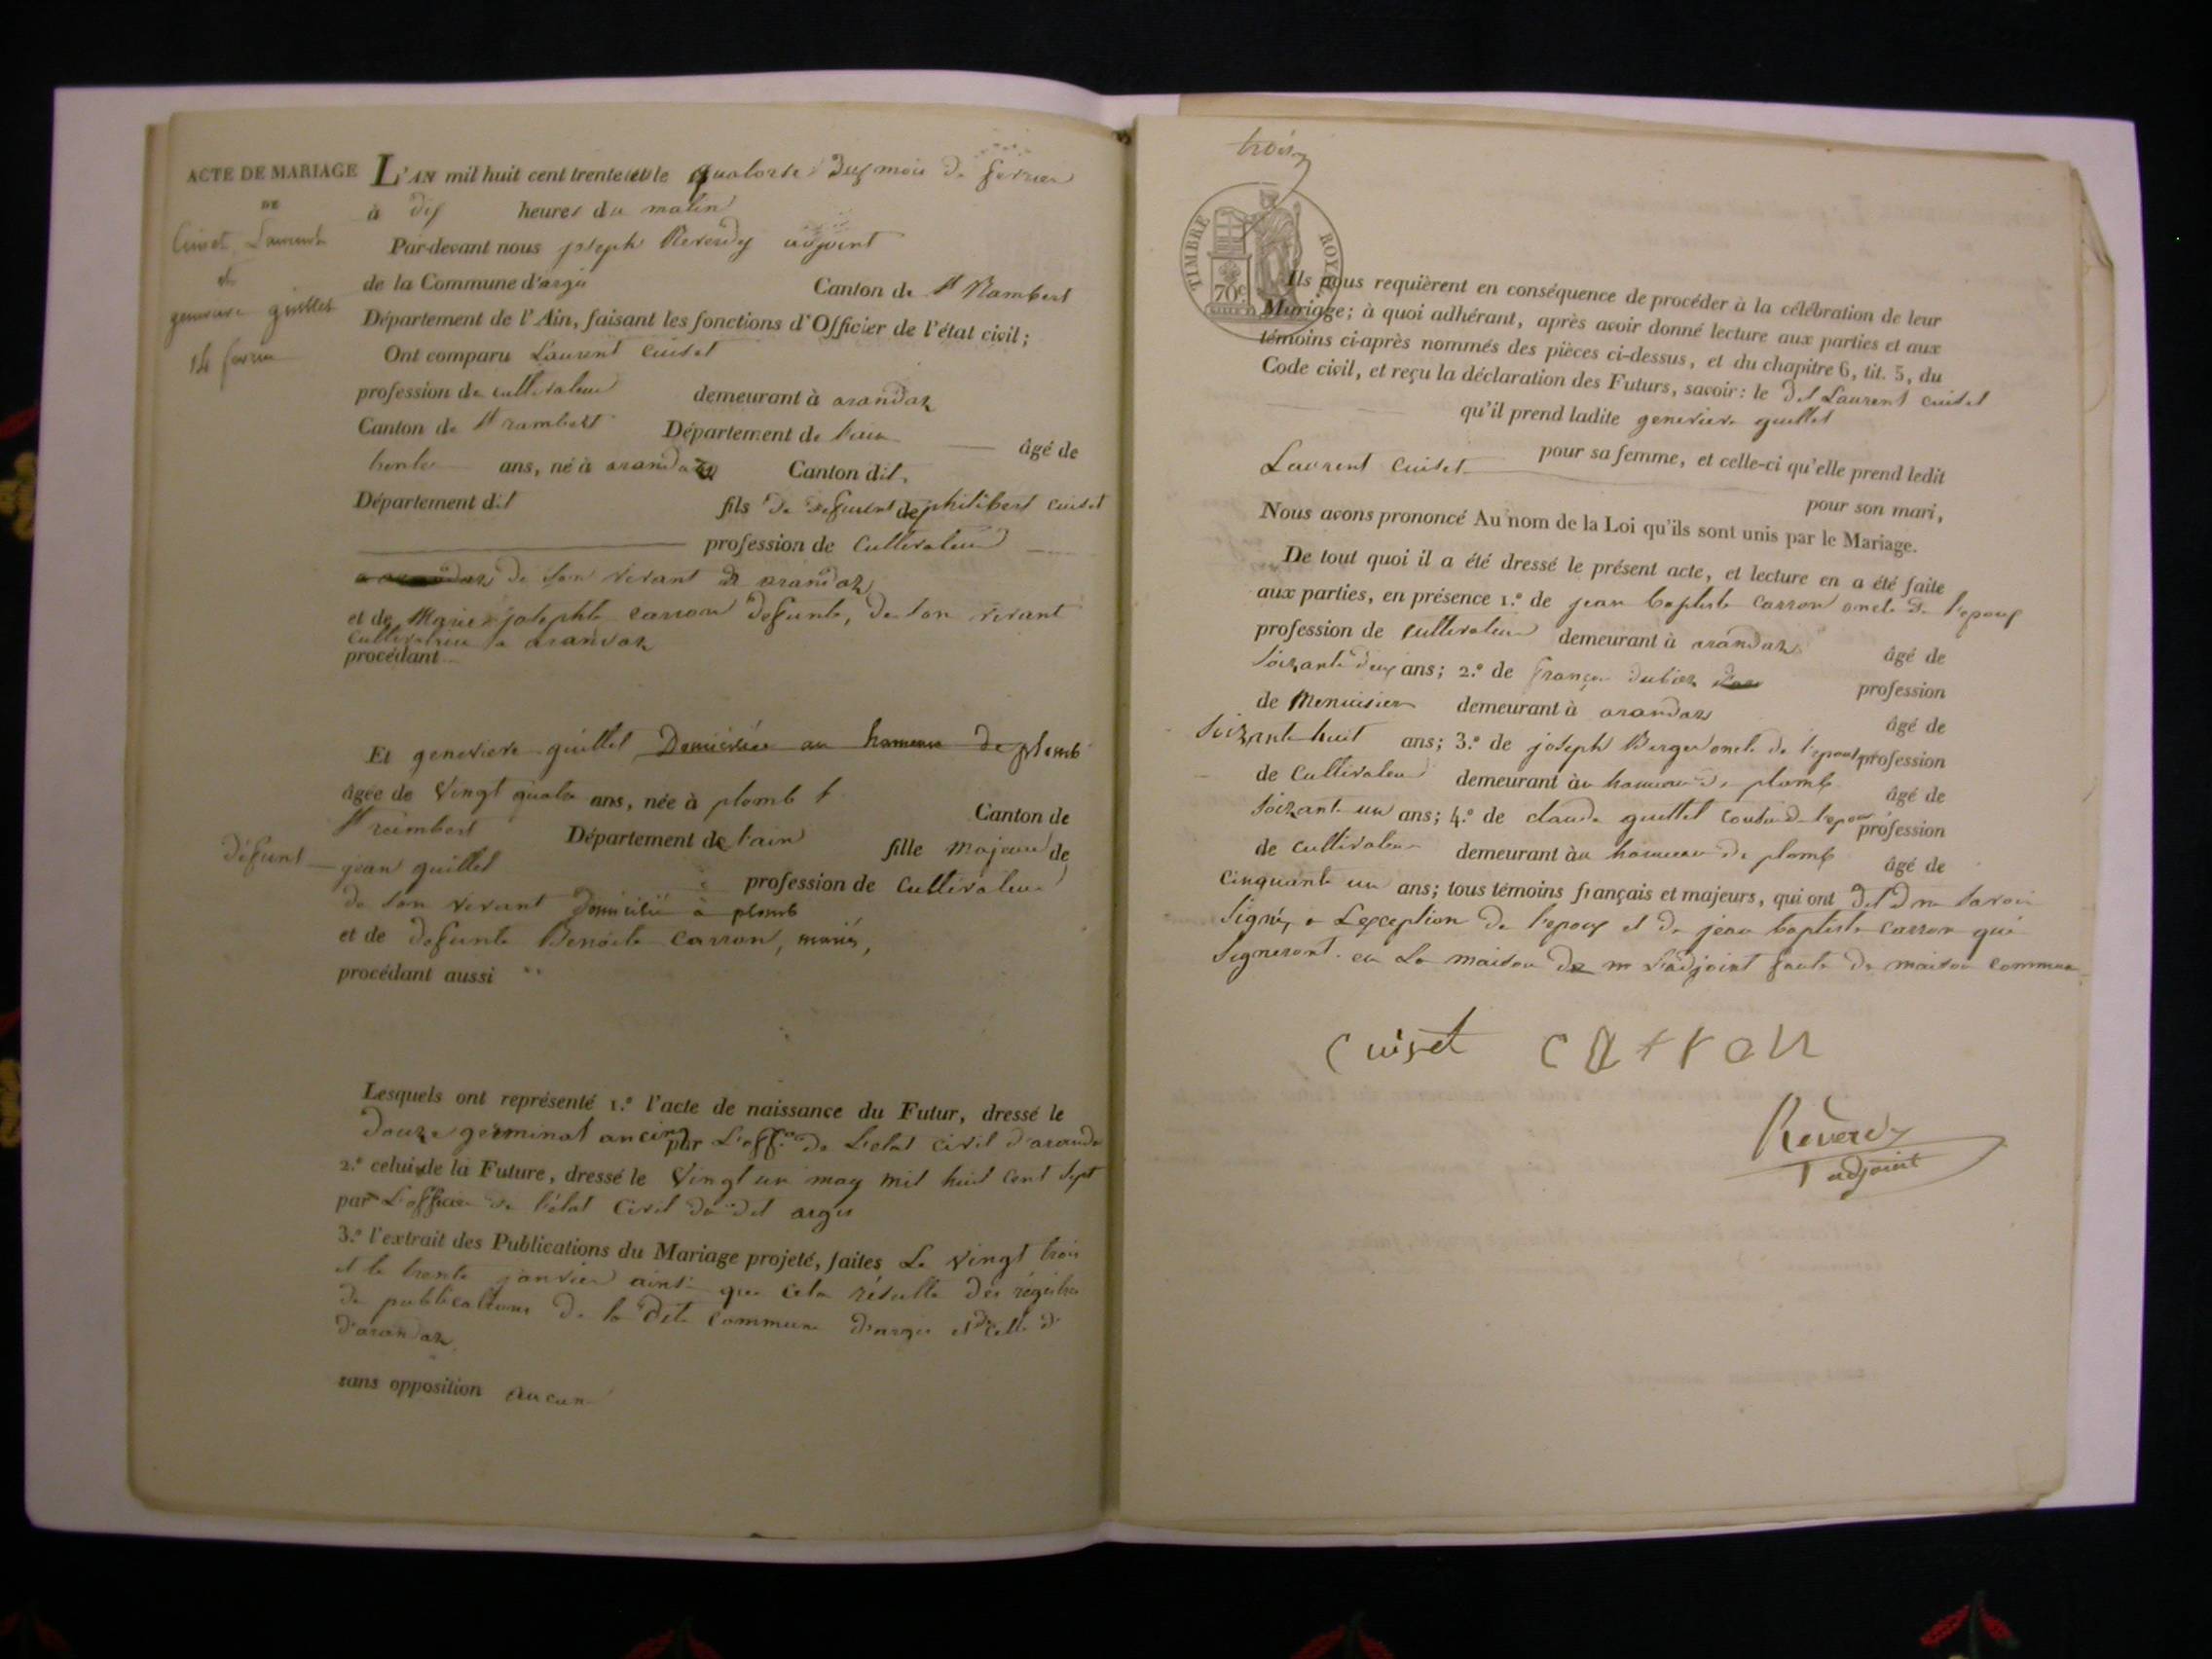 ACTE DE MARIAGE
DE
Cuiset Laurent
et
genevieve guillet
14 fevrier
L'AN mil huit cent trente et un le quatorze du mois de fevrier
à dix heures du matin
Par-devant nous joseph Reverdy adjoint
de la Commune d'argis Canton de St Rambert
Département de l'Ain, faisant les fonctions d'Officier de l'état civil;
Ont comparu Laurent Cuiset
profession de cultivateur demeurant à arandaz
Canton de St rambert Département de l'ain âgé de
trente ans, né à arandaz Canton dit.
Département dit fils de defunt de philibert cuiset
profession de Cultivateur
de son vivant à arandaz
et de Marie josephte carron defunte, de son vivant
cultivatrice a arandaz
procédant
Et genevieve guillet Domiciliée au hameau de plomb
âgée de Vingt quatre ans, née à plomb Canton de
St rambert Département de l'ain fille majeure de
défunt jean guillet profession de Cultivateur
de son vivant Domicilié à plomb
et de defunte Benoite Carron, mariés,
procédant aussi
Lesquels ont représenté 1.º l'acte de naissance du Futur, dressé le
Douze germinal an cinq par L'off. de L'etat civil d'arandaz
2.º celui de la Future, dressé le Vingt un may mil huit cent sept
par L'officier de l'état Civil du dit argis
3.º l'extrait des Publications du Mariage projeté, faites Le vingt trois
et le trente janvier ainsi que cela résulte des régistres
de publications de la dite commune d'argis et de celle d
d'arandaz
sans opposition aucune
trois
TIMBRE ROYAL
70c
Ils nous requièrent en conséquence de procéder à la célébration de leur
Mariage; à quoi adhérant, après avoir donné lecture aux parties et aux
témoins ci-après nommés des pièces ci-dessus, et du chapitre 6, tit. 5, du
Code civil, et reçu la déclaration des Futurs, savoir: le dit Laurent cuiset
qu'il prend ladite genevieve guillet
pour sa femme, et celle-ci qu'elle prend ledit
Laurent Cuiset
pour son mari,
Nous avons prononcé Au nom de la Loi qu'ils sont unis par le Mariage.
De tout quoi il a été dressé le présent acte, et lecture en a été faite
aux parties, en présence 1.º de jean baptiste Carron oncle de l'epoux
profession de cultivateur demeurant à arandaz âgé de
soixante deux ans; 2.º de françois dubiez profession
de Menuisier demeurant à arandaz âgé de
soixante huit ans; 3.º de joseph Berger oncle de l'epouse profession
de Cultivateur demeurant àu hameau de plomb âgé de
soixante un ans; 4.º de claude guillet cousin de l'epouse profession
de cultivateur demeurant àu hameau de plomb âgé de
cinquante un ans; tous témoins français et majeurs, qui ont dit d ne savoir
signér, a L'exception de l'epoux et de jean baptiste carron qui
signeront. en La maison de m L'adjoint faute de maison commune
cuiset carron
Reverdy
adjoint